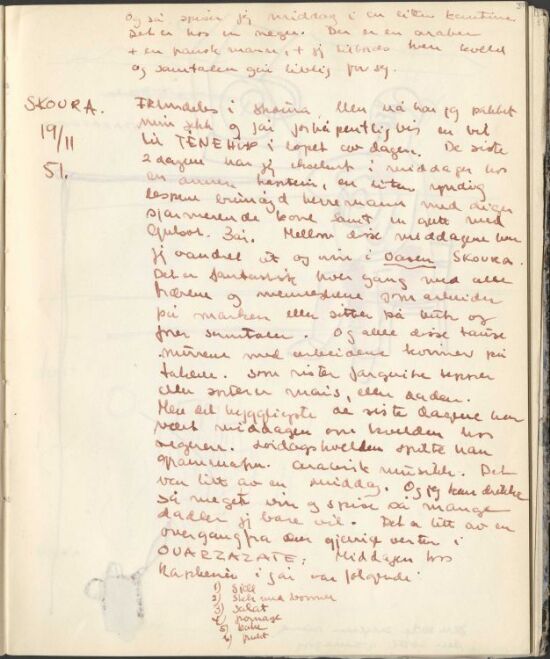 Og så spiser jeg middag i en liten kantine
Det er hos en neger. Der er en araber
+ en fransk mann, + jj hver kveld
og samtalen går livlig for seg.
SKOURA.
19/11
51.
Fremdeles i Skoura, Men nå har jeg pakket
min sekk og får forhåpentlig vis en bil
til TENEHIR i løpet av dagen. De siste
2 dagene har jeg i middager hos
en annen kaptein, en liten
herremann med deiger
sjarmerende kone samt en gutt med
Mellom disse middagene har
jeg vandret ut og inn i Oasen SKOURA.
Det er fantastisk hver gang med alle
trærne og menneskene som arbeider
på marken eller sitter på huk og
fører samtaler. Og alle disse tause
murene med arbeidene kvinner på
takene. som rister fargerike tepper
eller sorterer mais, eller dadler.
Men det hyggeligste de siste dagene har
vært middagen om kvelden hos
negeren. Lørdagskvelden spilte han
grammofon. arabisk musikk. Det
var litt av en middag. Og jeg kan drikke
så meget vin og spise så mange
dadler jeg bare vil. Det er litt av en
overgang fra den gjerrige verten i
OUARZAZATE: Middagen hos
Kapteinen i går var følgende:
1)
2) med
3) salat
4) fromage
5) kake
6) frukt